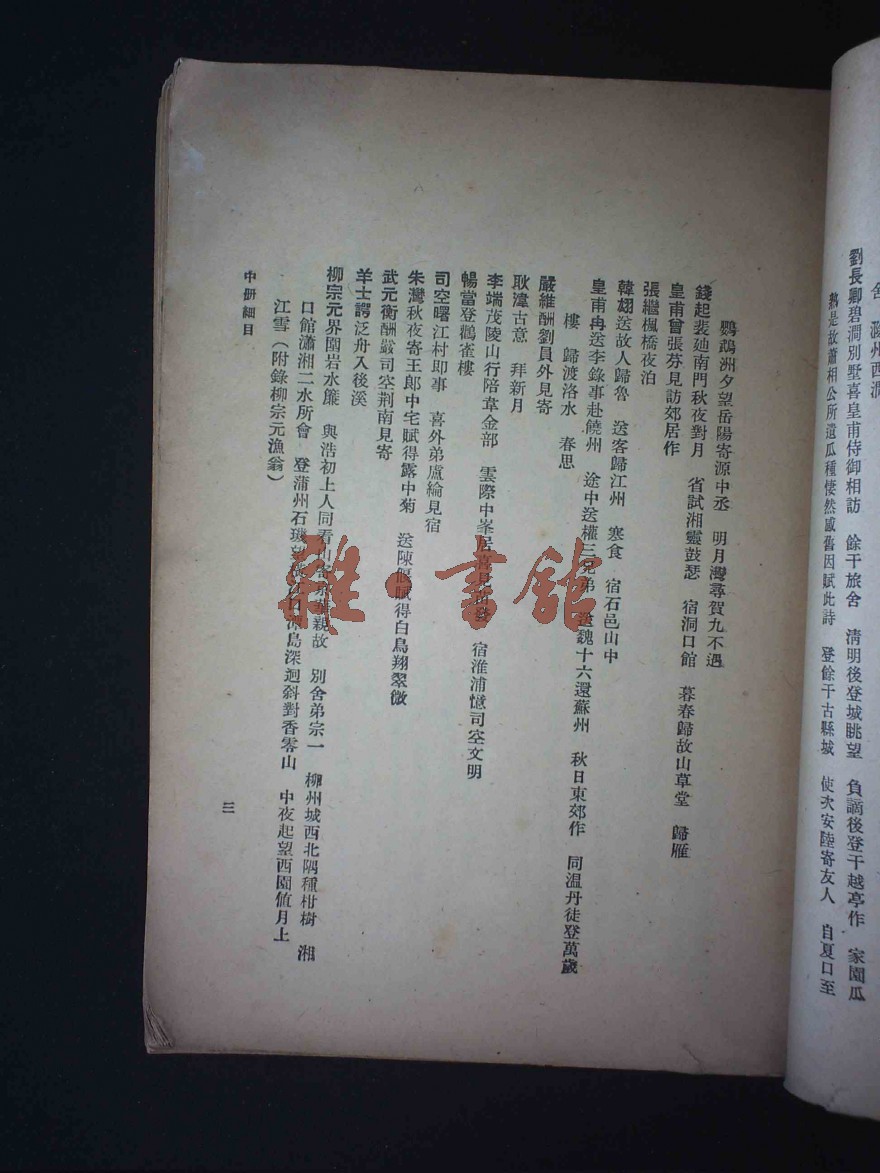 舍　滁州西澗
劉長卿碧澗別墅喜皇甫侍御相訪　餘干旅舍　清明後登城眺望　負謫後登干越亭作　家園瓜
熟是故蕭相公所遺瓜種悽然感舊因賦此詩　登餘干古縣城　使次安陸寄友人　自夏口至
鸚鵡洲夕望岳陽寄源中丞　明月灣尋賀九不遇
錢起裴廸南門秋夜對月　省試湘靈鼓瑟　宿洞口館　暮春歸故山草堂　歸雁
皇甫曾張芬見訪郊居作
張繼楓橋夜泊
韓翃送故人歸魯　送客歸江州　寒食　宿石邑山中
皇甫冉送李錄事赴饒州　途中送權三兄弟　送魏十六還蘇州　秋日東郊作　同温丹徒登萬歲
樓　歸渡洛水　春思
嚴維酬劉員外見寄
耿湋古意　拜新月
李端茂陵山行陪韋金部　雲際中峯居喜見苗發　宿淮浦憶司空文明
暢當登鸛雀樓
司空曙江村即事　喜外弟盧綸見宿
朱灣秋夜寄王郎中宅賦得露中菊　送陳偃賦得白鳥翔翠微
武元衡酬嚴司空荆南見寄
羊士諤泛舟入後溪
柳宗元界圍岩水簾　與浩初上人同看山寄京華親故　別舍弟宗一　柳州城西北隅種柑樹　湘
口館瀟湘二水所會　登蒲州石磯望江口潭島深迥斜對香零山　中夜起望西園值月上
江雪（附錄柳宗元漁翁）
中册細目
三
雜·書館